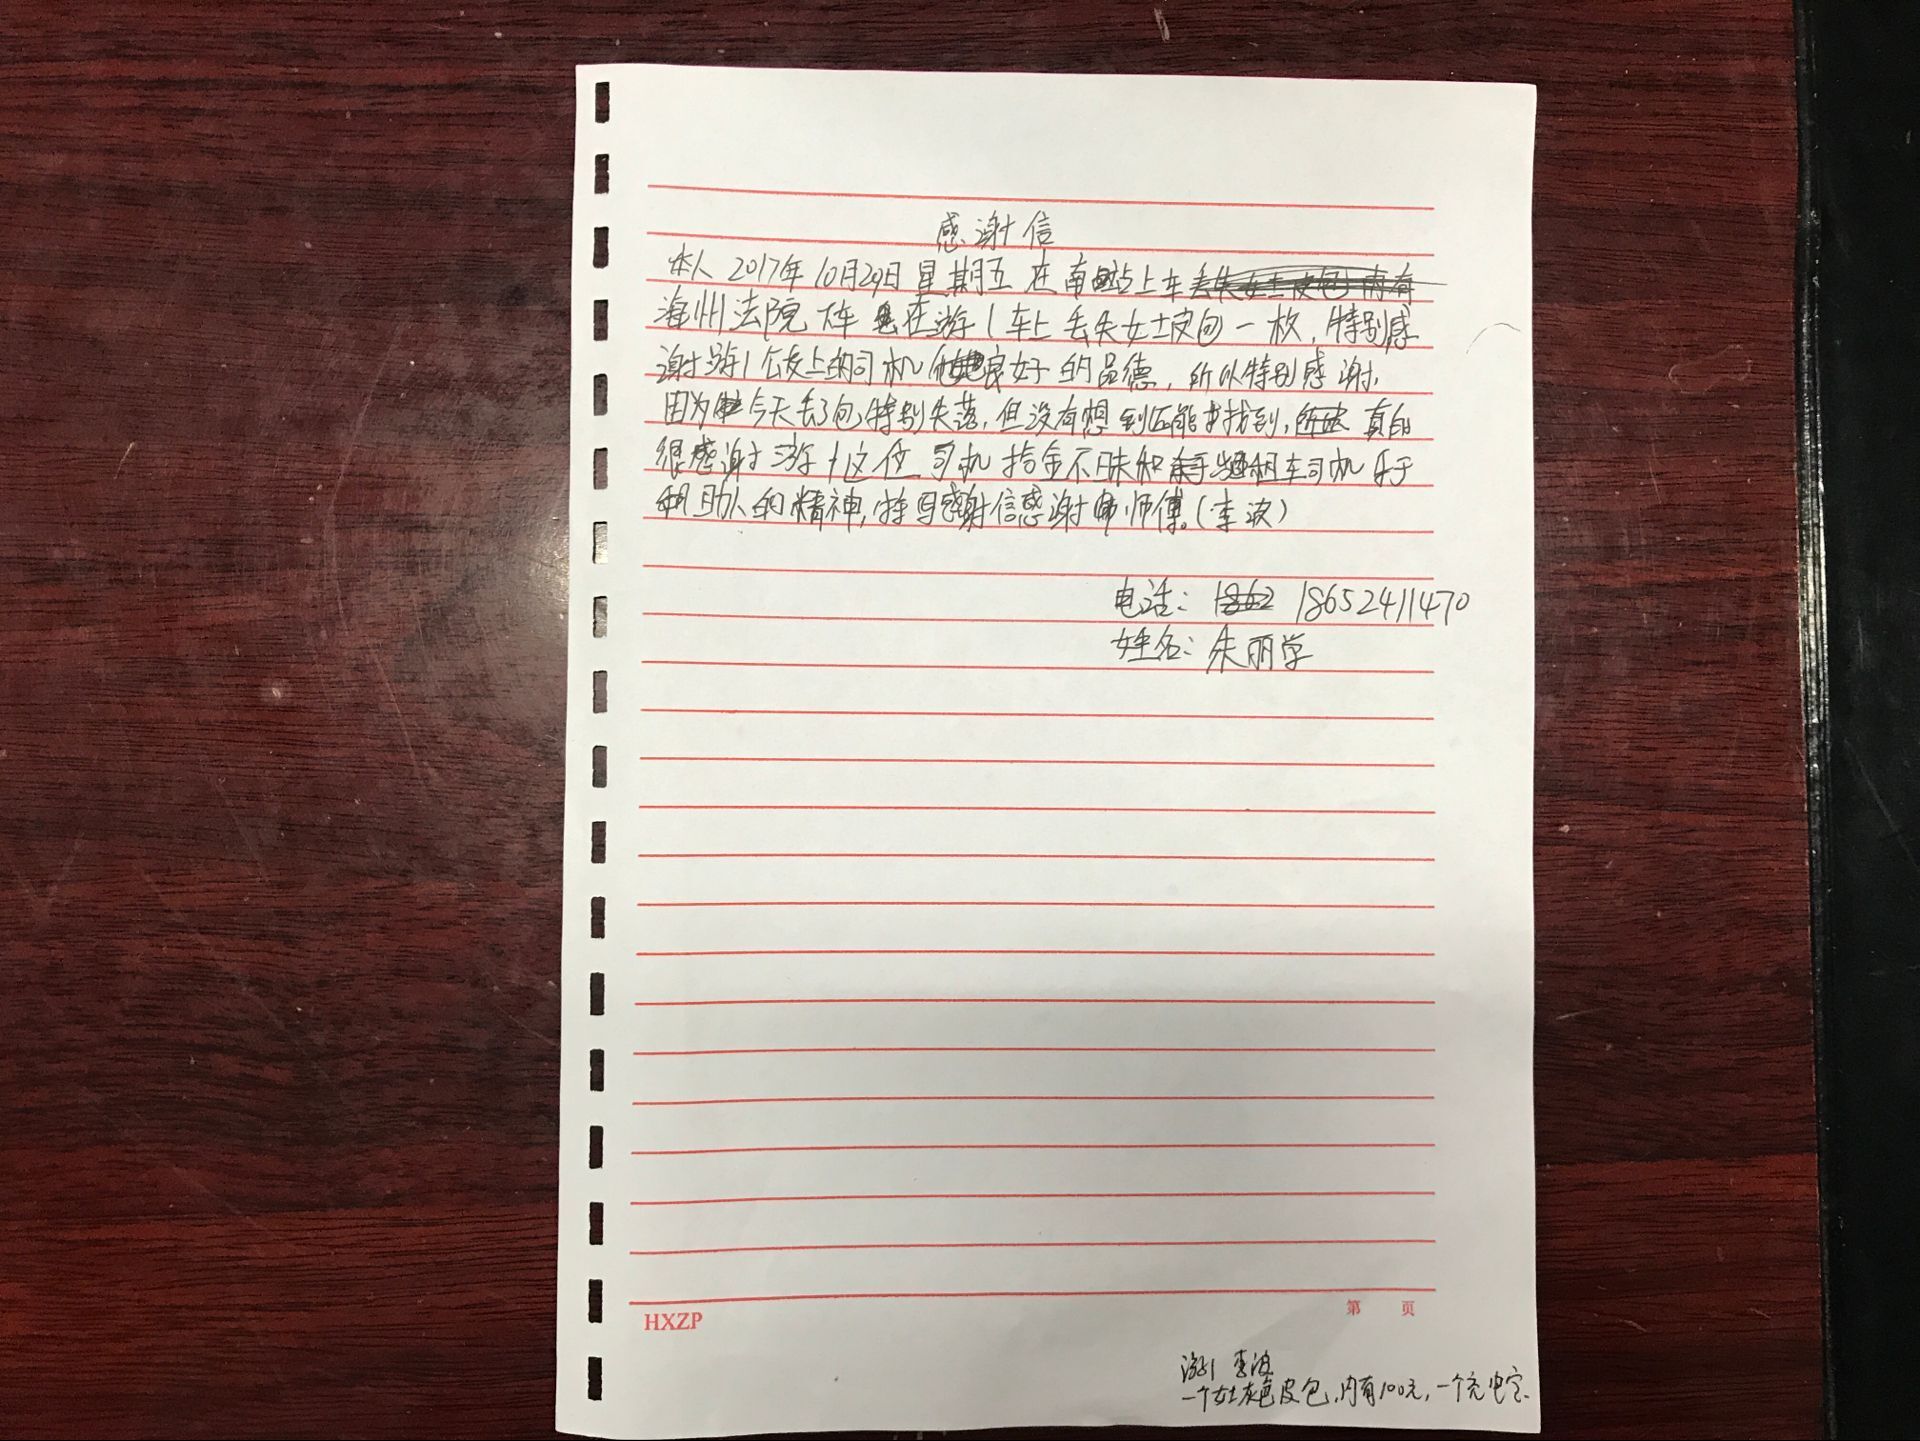 感谢信
本人 2017年10月29日星期五在南站上车丢失女士皮包内有
海州法院下车在游1车上丢失女士皮包一枚,特别感
谢游1公交上的司机良好的品德,所以特别感谢.
因为今天丢了包,特别失落,但没有想到还能找到,真的
很感谢游1这位司机拾金不昧和出租车司机乐于
助人的精神,特写感谢信感谢师傅。(李波)
电话: 1862 18652411470
姓名: 朱丽学
HXZP
第 页
游1 李波
一个女士灰色皮包,内有100元,一个充电宝.